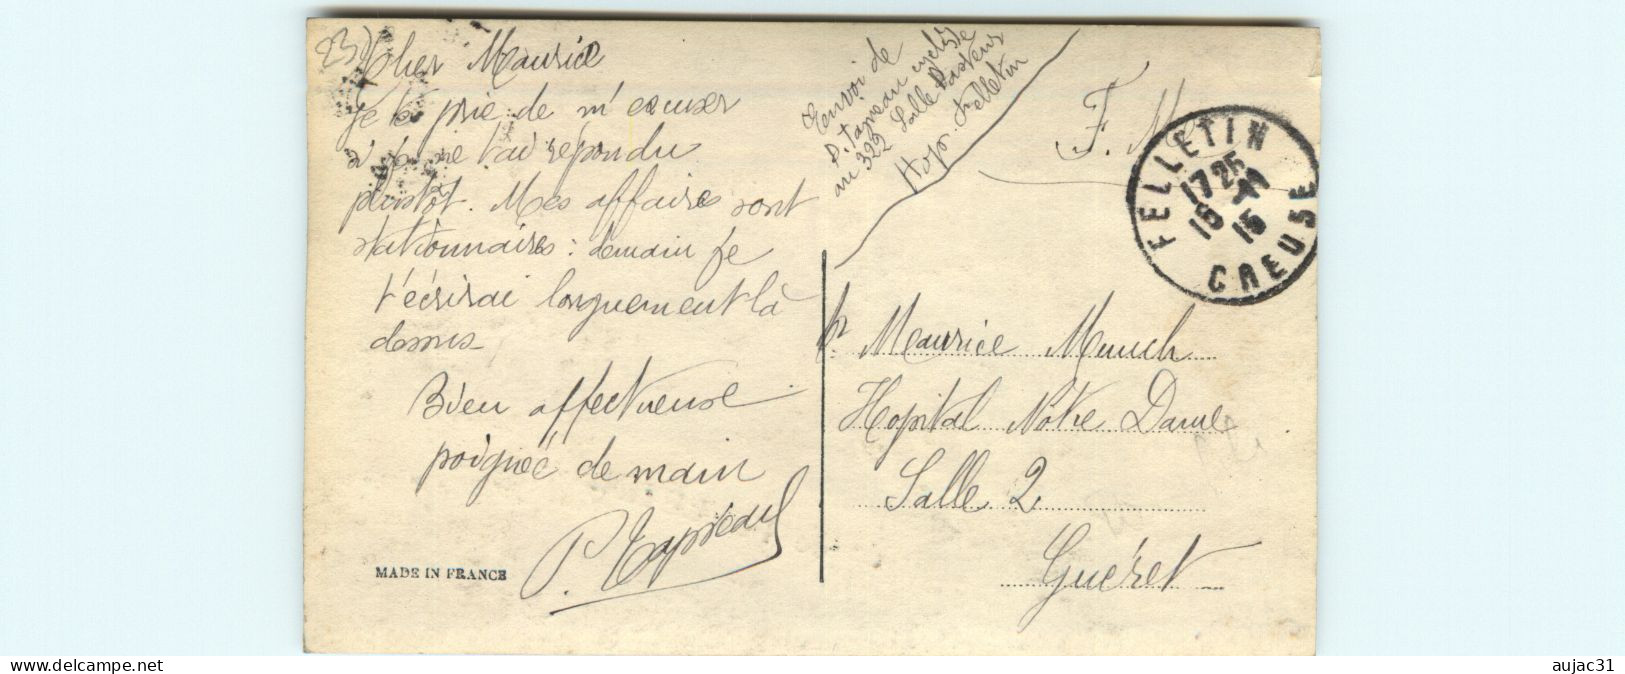 23)
Cher Maurice
je te prie de m'excuser
si je ne t'ai répondu
plustôt. Mes affaires sont
stationnaires : demain je
t'écrirai longuement là
dessus
Bien affectueuse
poignée de main
MADE IN FRANCE
Envoi de
P. cycliste
au 322 Salle Pasteur
Hop. Felletin
F. M.
FELLETIN
17 25
15 - 11
15
CREUSE
Maurice Munch
Hopital Notre Dame
Salle 2
Guéret
www.delcampe.net
aujac31